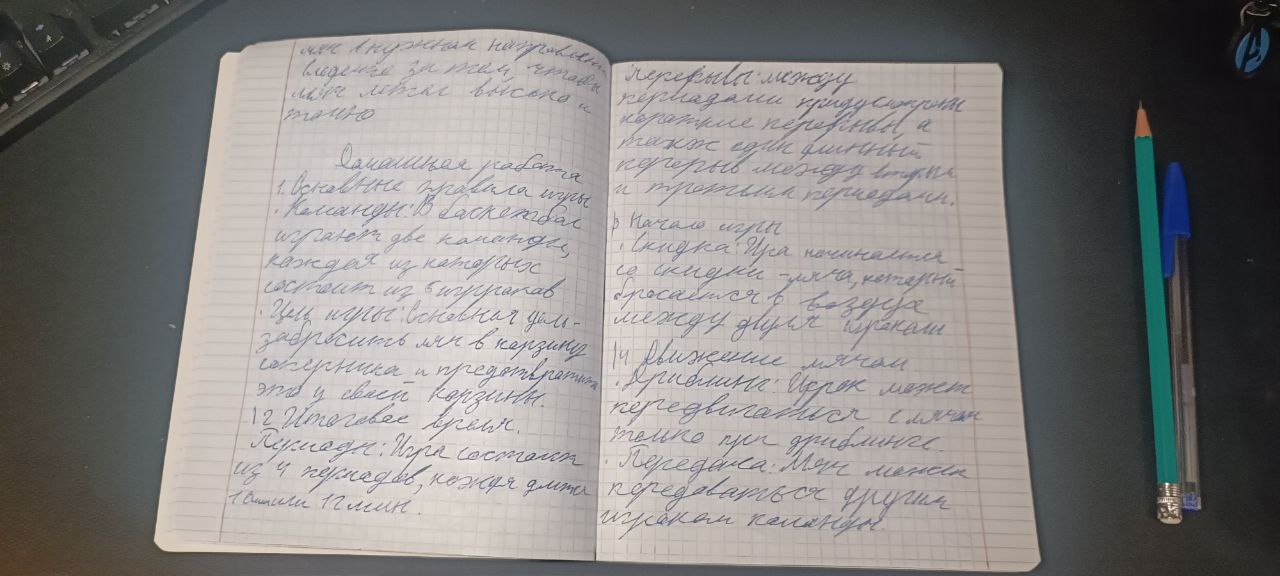 мяч в нужном направлен
ведение за тем, чтобы
мяч летел высоко и
точно
Домашняя работа
1. Основные правила игры
· Команды: В баскетбол
играют две команды,
каждая из которых
состоит из 5 игроков
· Цель игры: Основная цель-
забросить мяч в корзину
соперника и предотвратить
это у своей корзины.
12 Итоговое время.
Периоды: Игра состоит
из 4 периодов, каждая длит
10 или 12 мин.
Перерывы: между
периодами предусмотрены
короткие перерывы, а
также один длинный
перерыв между вторым
и третьим периодами.
Начало игры
· Скидка: Игра начинается
со скидки - мяча, который
бросается в воздух
между двумя игроками
14 Движение мячом.
· Дриблинг: Игрок может
передвигаться с мячом
только при дриблинге.
· Передача: Мяч может
передаваться другим
игрокам команды.